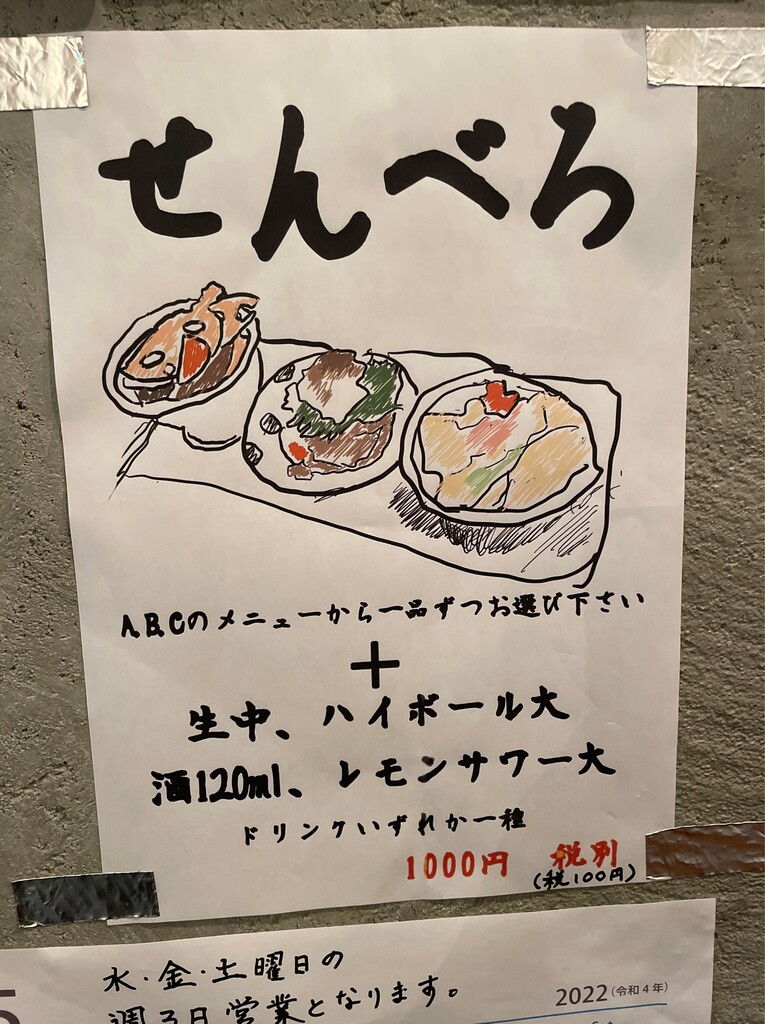 せんべろ
A,B,Cのメニューから一品ずつお選び下さい
＋
生中、ハイボール大
酒120ml、レモンサワー大
ドリンクいずれか一種
1000円 税別
(税100円)
水・金・土曜日の
週3日営業となります。
5
2022(令和4年)